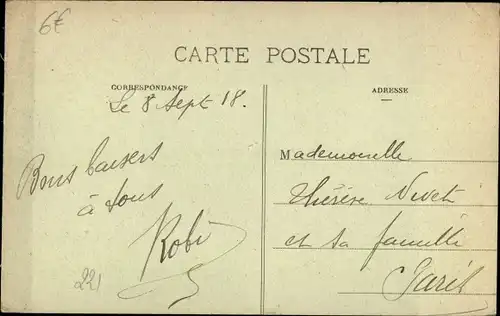 6€
CARTE POSTALE
CORRESPONDANCE
Le 8 Sept 18.
Bons baisers
à tous
Robi
221
ADRESSE
Mademoiselle
Thérèse
et sa famille
Paris